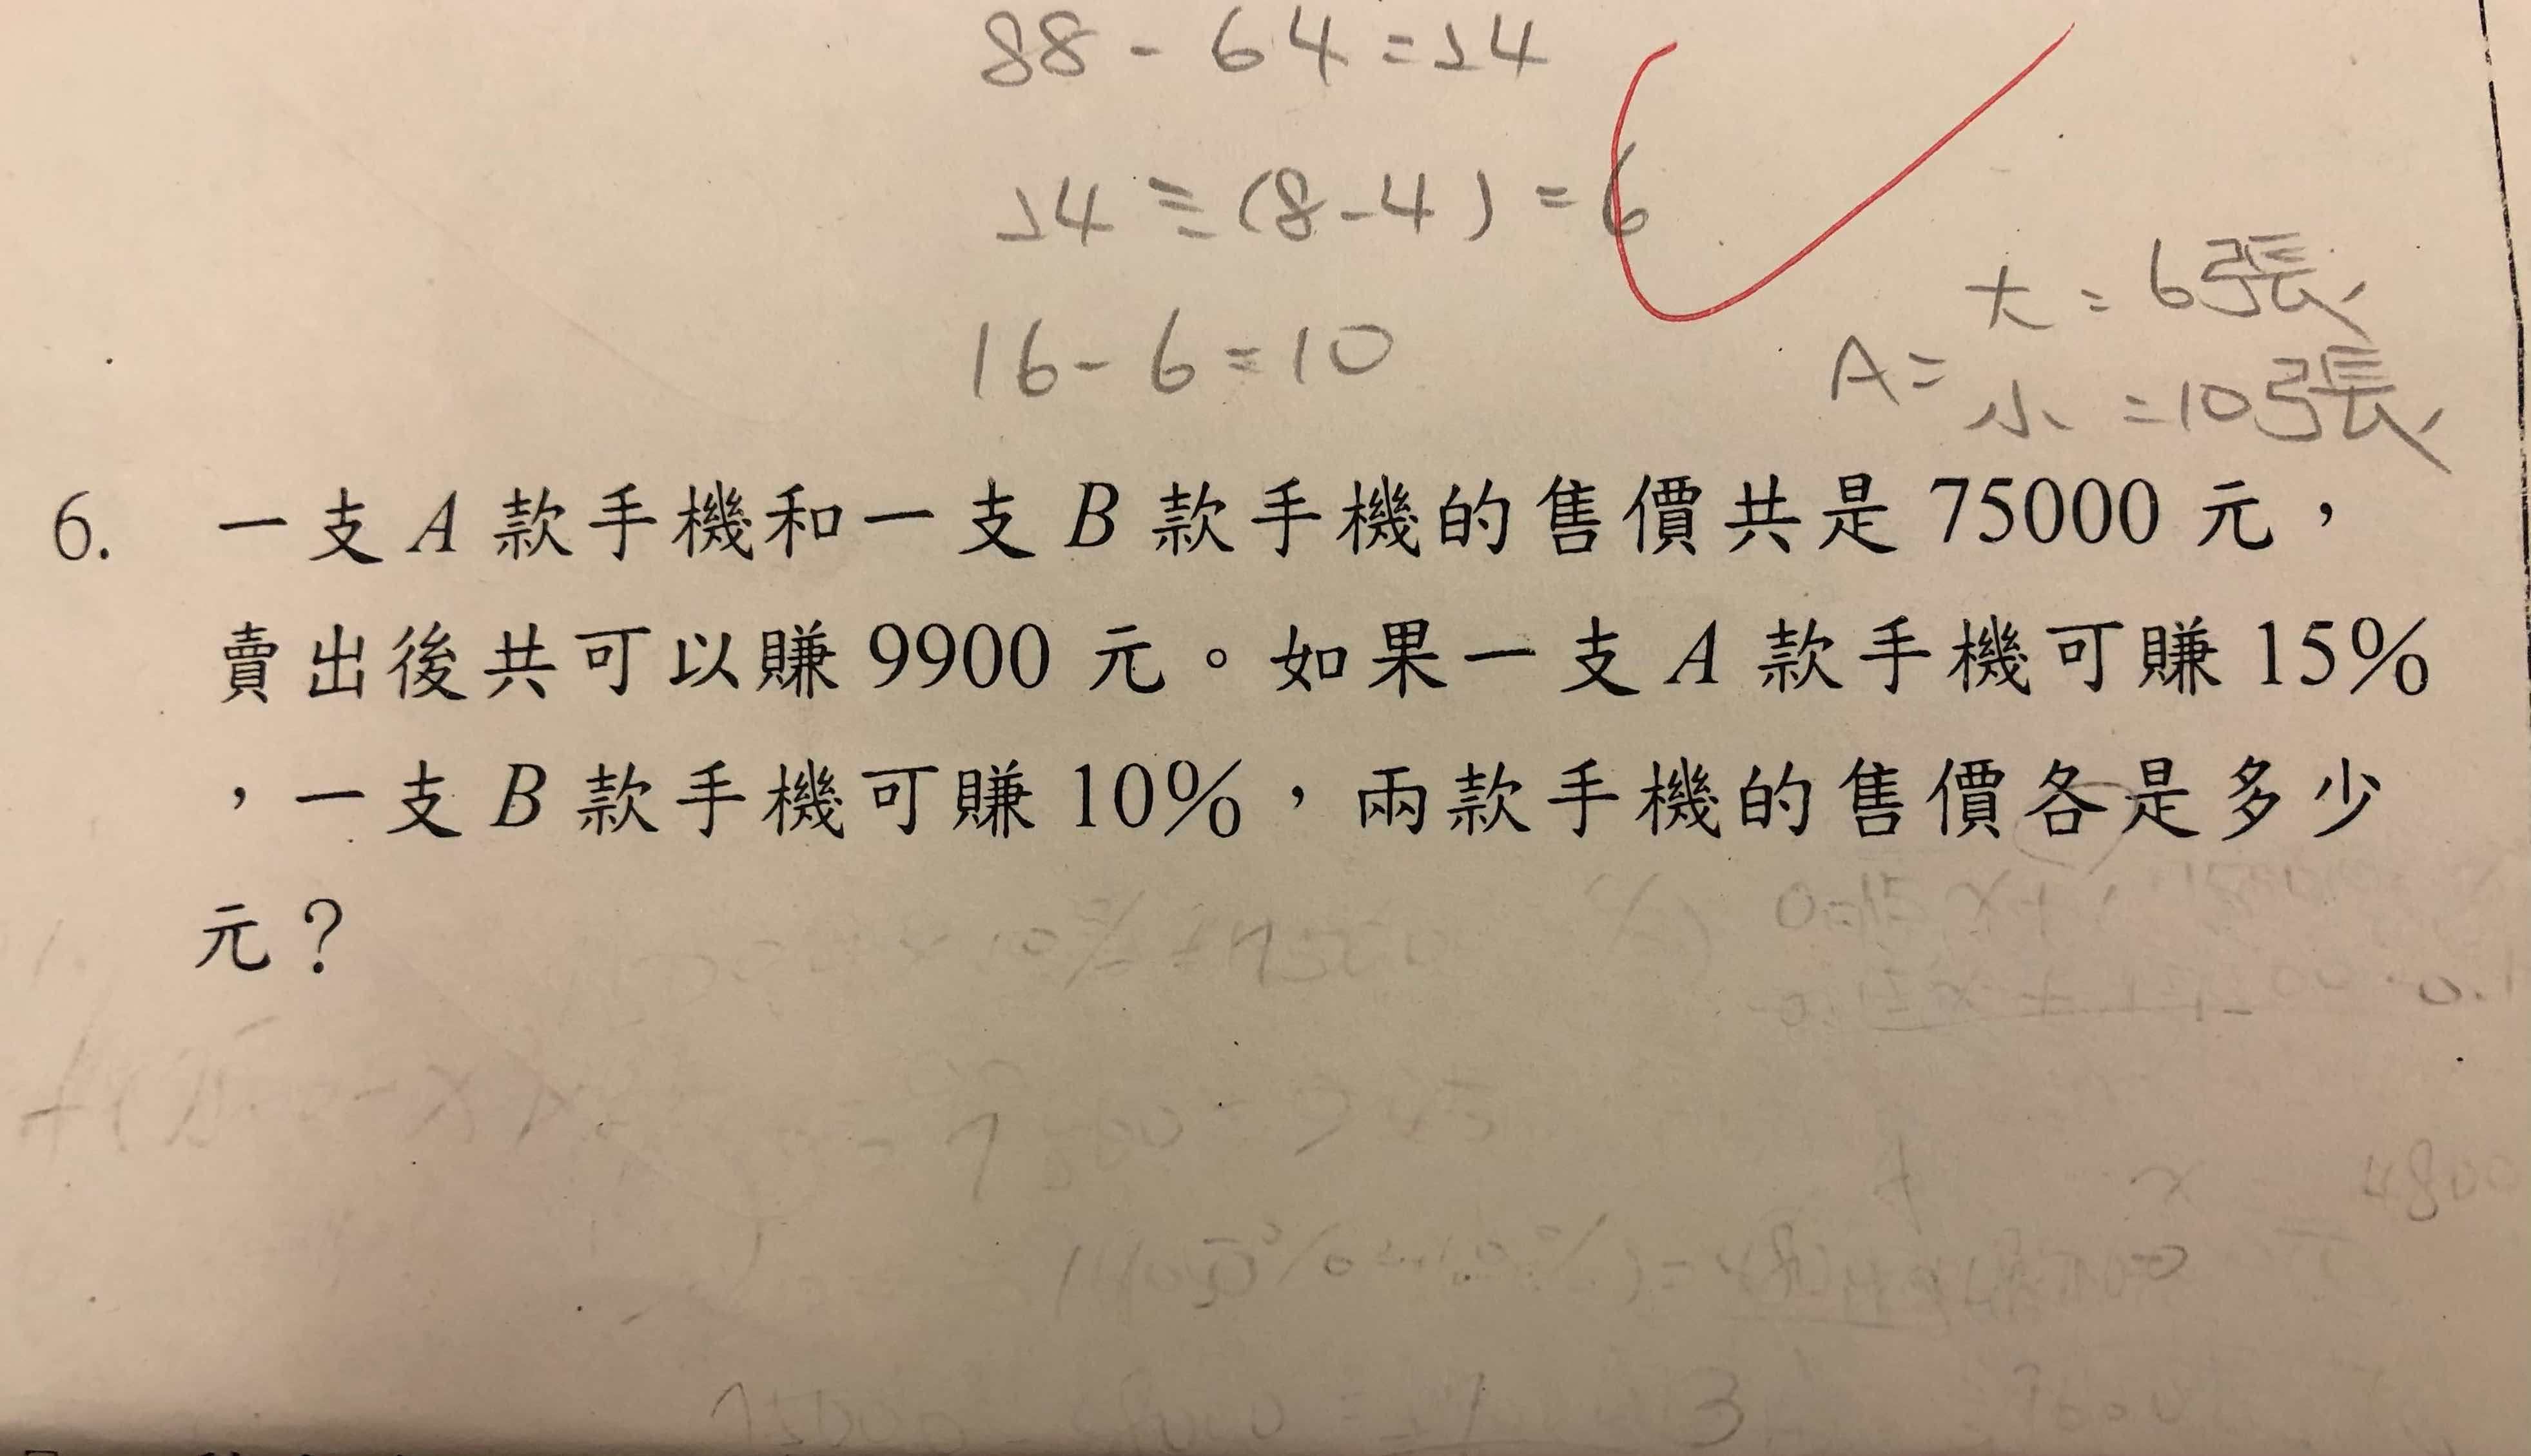 88-64=24
24÷(8-4)=6
大=6張
16-6=10
A=
小=10張
6. 一支A款手機和一支B款手機的售價共是75000元，
賣出後共可以賺9900元。如果一支A款手機可賺15%
，一支B款手機可賺10%，兩款手機的售價各是多少
元？